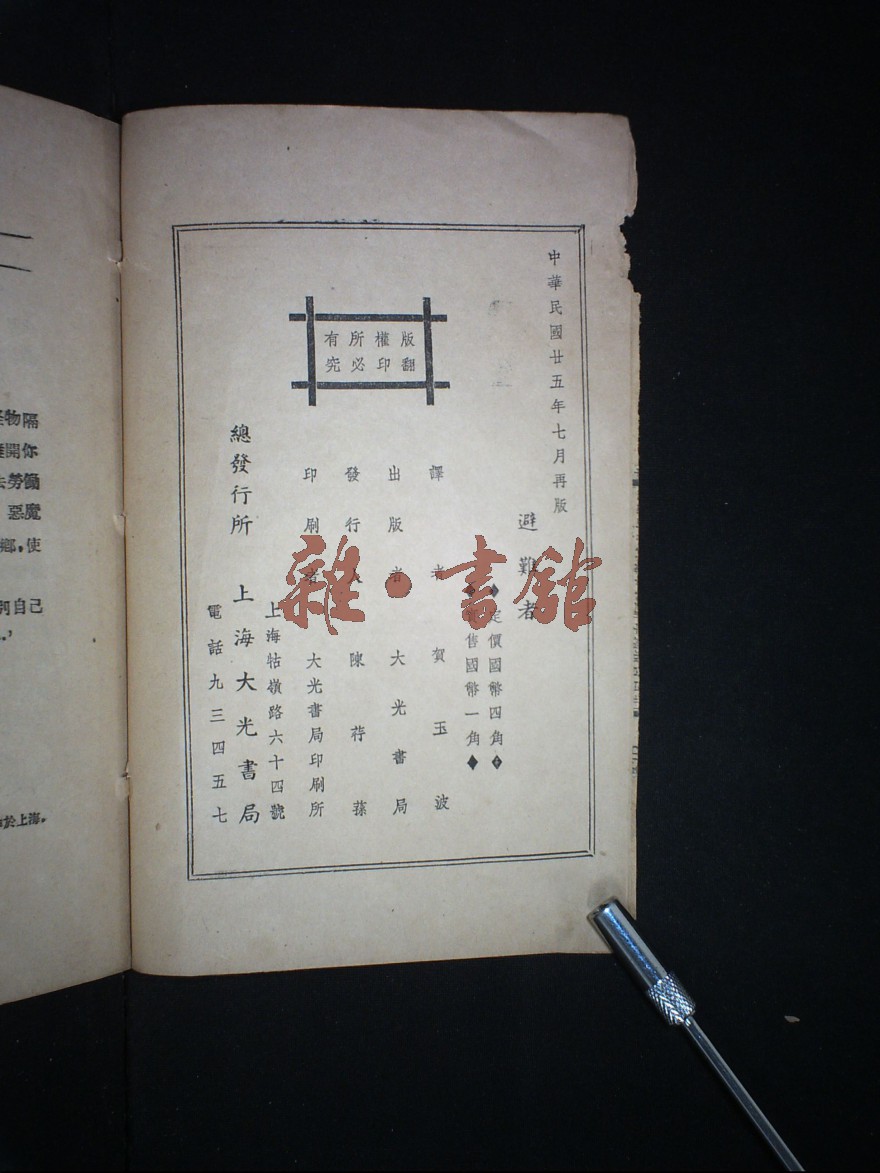 中華民國廿五年七月再版
避難者
定價國幣四角
售國幣一角
譯者 賀玉波
出版者 大光書局
發行人 陳荇蓀
印刷者 大光書局印刷所
版權所有
翻印必究
上海牯嶺路六十四號
總發行所 上海大光書局
電話九三四五七
物隔
開你
去勞働
惡魔
鄉,使
自己
於上海。
雜·書館